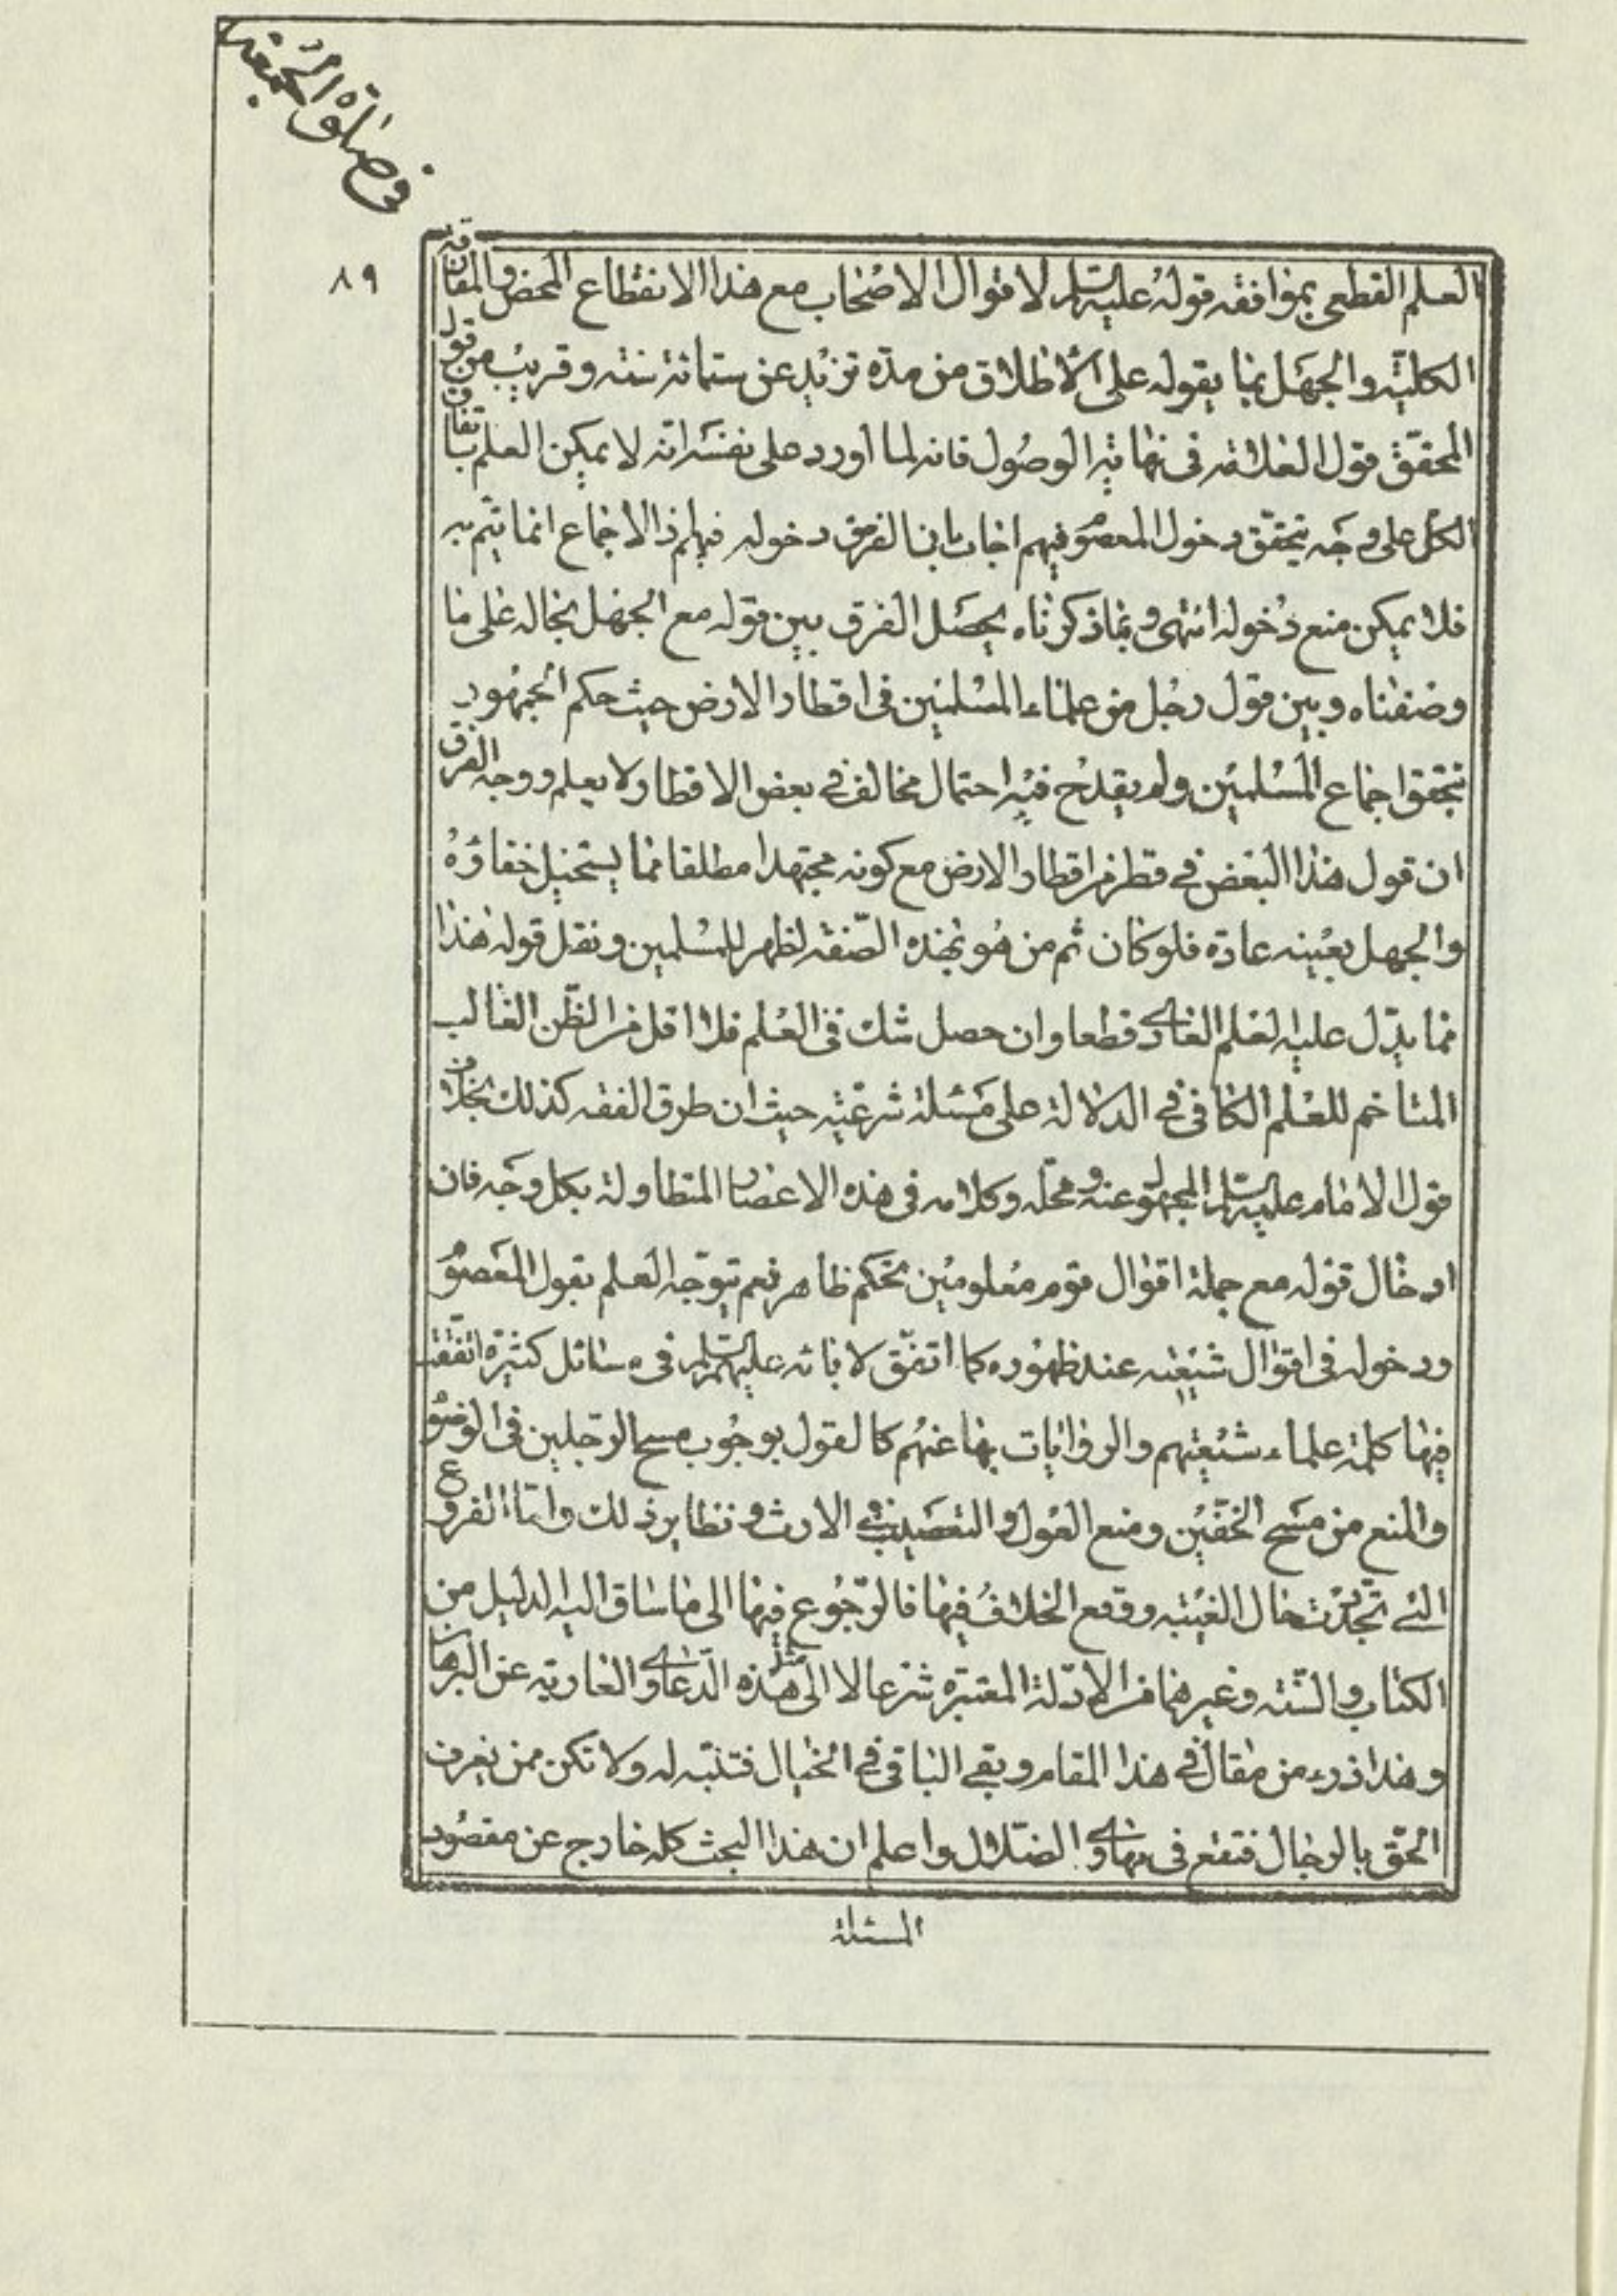 في صلوة الجمعة
٨٩
العلم القطعي بموافقة قوله عليه السلام لاقوال الاصحاب مع هذا الانقطاع المحض والمفارقة
الكلية والجهل بما يقوله على الاطلاق من مدة تزيد عن ستمائة سنة وقريب من قول
المحقق قول العلامة في نهاية الوصول فانه لما اورد على نفسه انه لا يمكن العلم باتفاق
الكل على وجه يتحقق دخول المعصوم فيهم اجاب بانا نفرض دخوله فيهم اذ الاجماع انما يتم به
فلا يمكن منع دخوله انتهى وبما ذكرناه يحصل الفرق بين قوله مع الجهل بحاله على ما
وصفناه وبين قول رجل من علماء المسلمين في اقطار الارض حيث حكم الجمهور
بتحقق اجماع المسلمين ولم يقدح فيه احتمال مخالف في بعض الاقطار ولا يعلم ووجه الفرق
ان قول هذا البعض في قطر من اقطار الارض مع كونه مجتهدا مطلقا مما يستحيل خفاؤه
والجهل بعينه عادة فلو كان ثم من هو بهذه الصفة لظهر للمسلمين ونقل قوله هذا
مما يدل عليه العلم العادي قطعا وان حصل شك في العلم فلا اقل من الظن الغالب
المتاخم للعلم الكافي في الدلالة على مسئلة شرعية حيث ان طرق الفقه كذلك بخلاف
قول الامام عليه السلام المجهول عنه ومحله وكلامه في هذه الاعصار المتطاولة بكل وجه فان
ادخال قوله مع جملة اقوال قوم معلومين تحكم ظاهر نعم يتوجه العلم بقول المعصوم
ودخوله في اقوال شيعته عند ظهوره كما اتفق لابائه عليهم السلام في مسائل كثيرة اتفقت
فيها كلمة علماء شيعتهم والروايات بها عنهم كالقول بوجوب مسح الرجلين في الوضوء
والمنع من مسح الخفين ومنع العول والتعصيب في الارث ونظاير ذلك واما الفروع
التي تجددت حال الغيبة ووقع الخلاف فيها فالرجوع فيها الى ما ساق اليه الدليل من
الكتاب والسنة وغيرهما من الادلة المعتبرة شرعا لا الى مثل هذه الدعاوي العارية عن البرهان
وهذا ذرء من مقال في هذا المقام وبقي الباقي في الخيال فتنبه له ولا تكن ممن يعرف
الحق بالرجال فتقع في مهاوي الضلال واعلم ان هذا البحث كله خارج عن مقصود
المسئلة